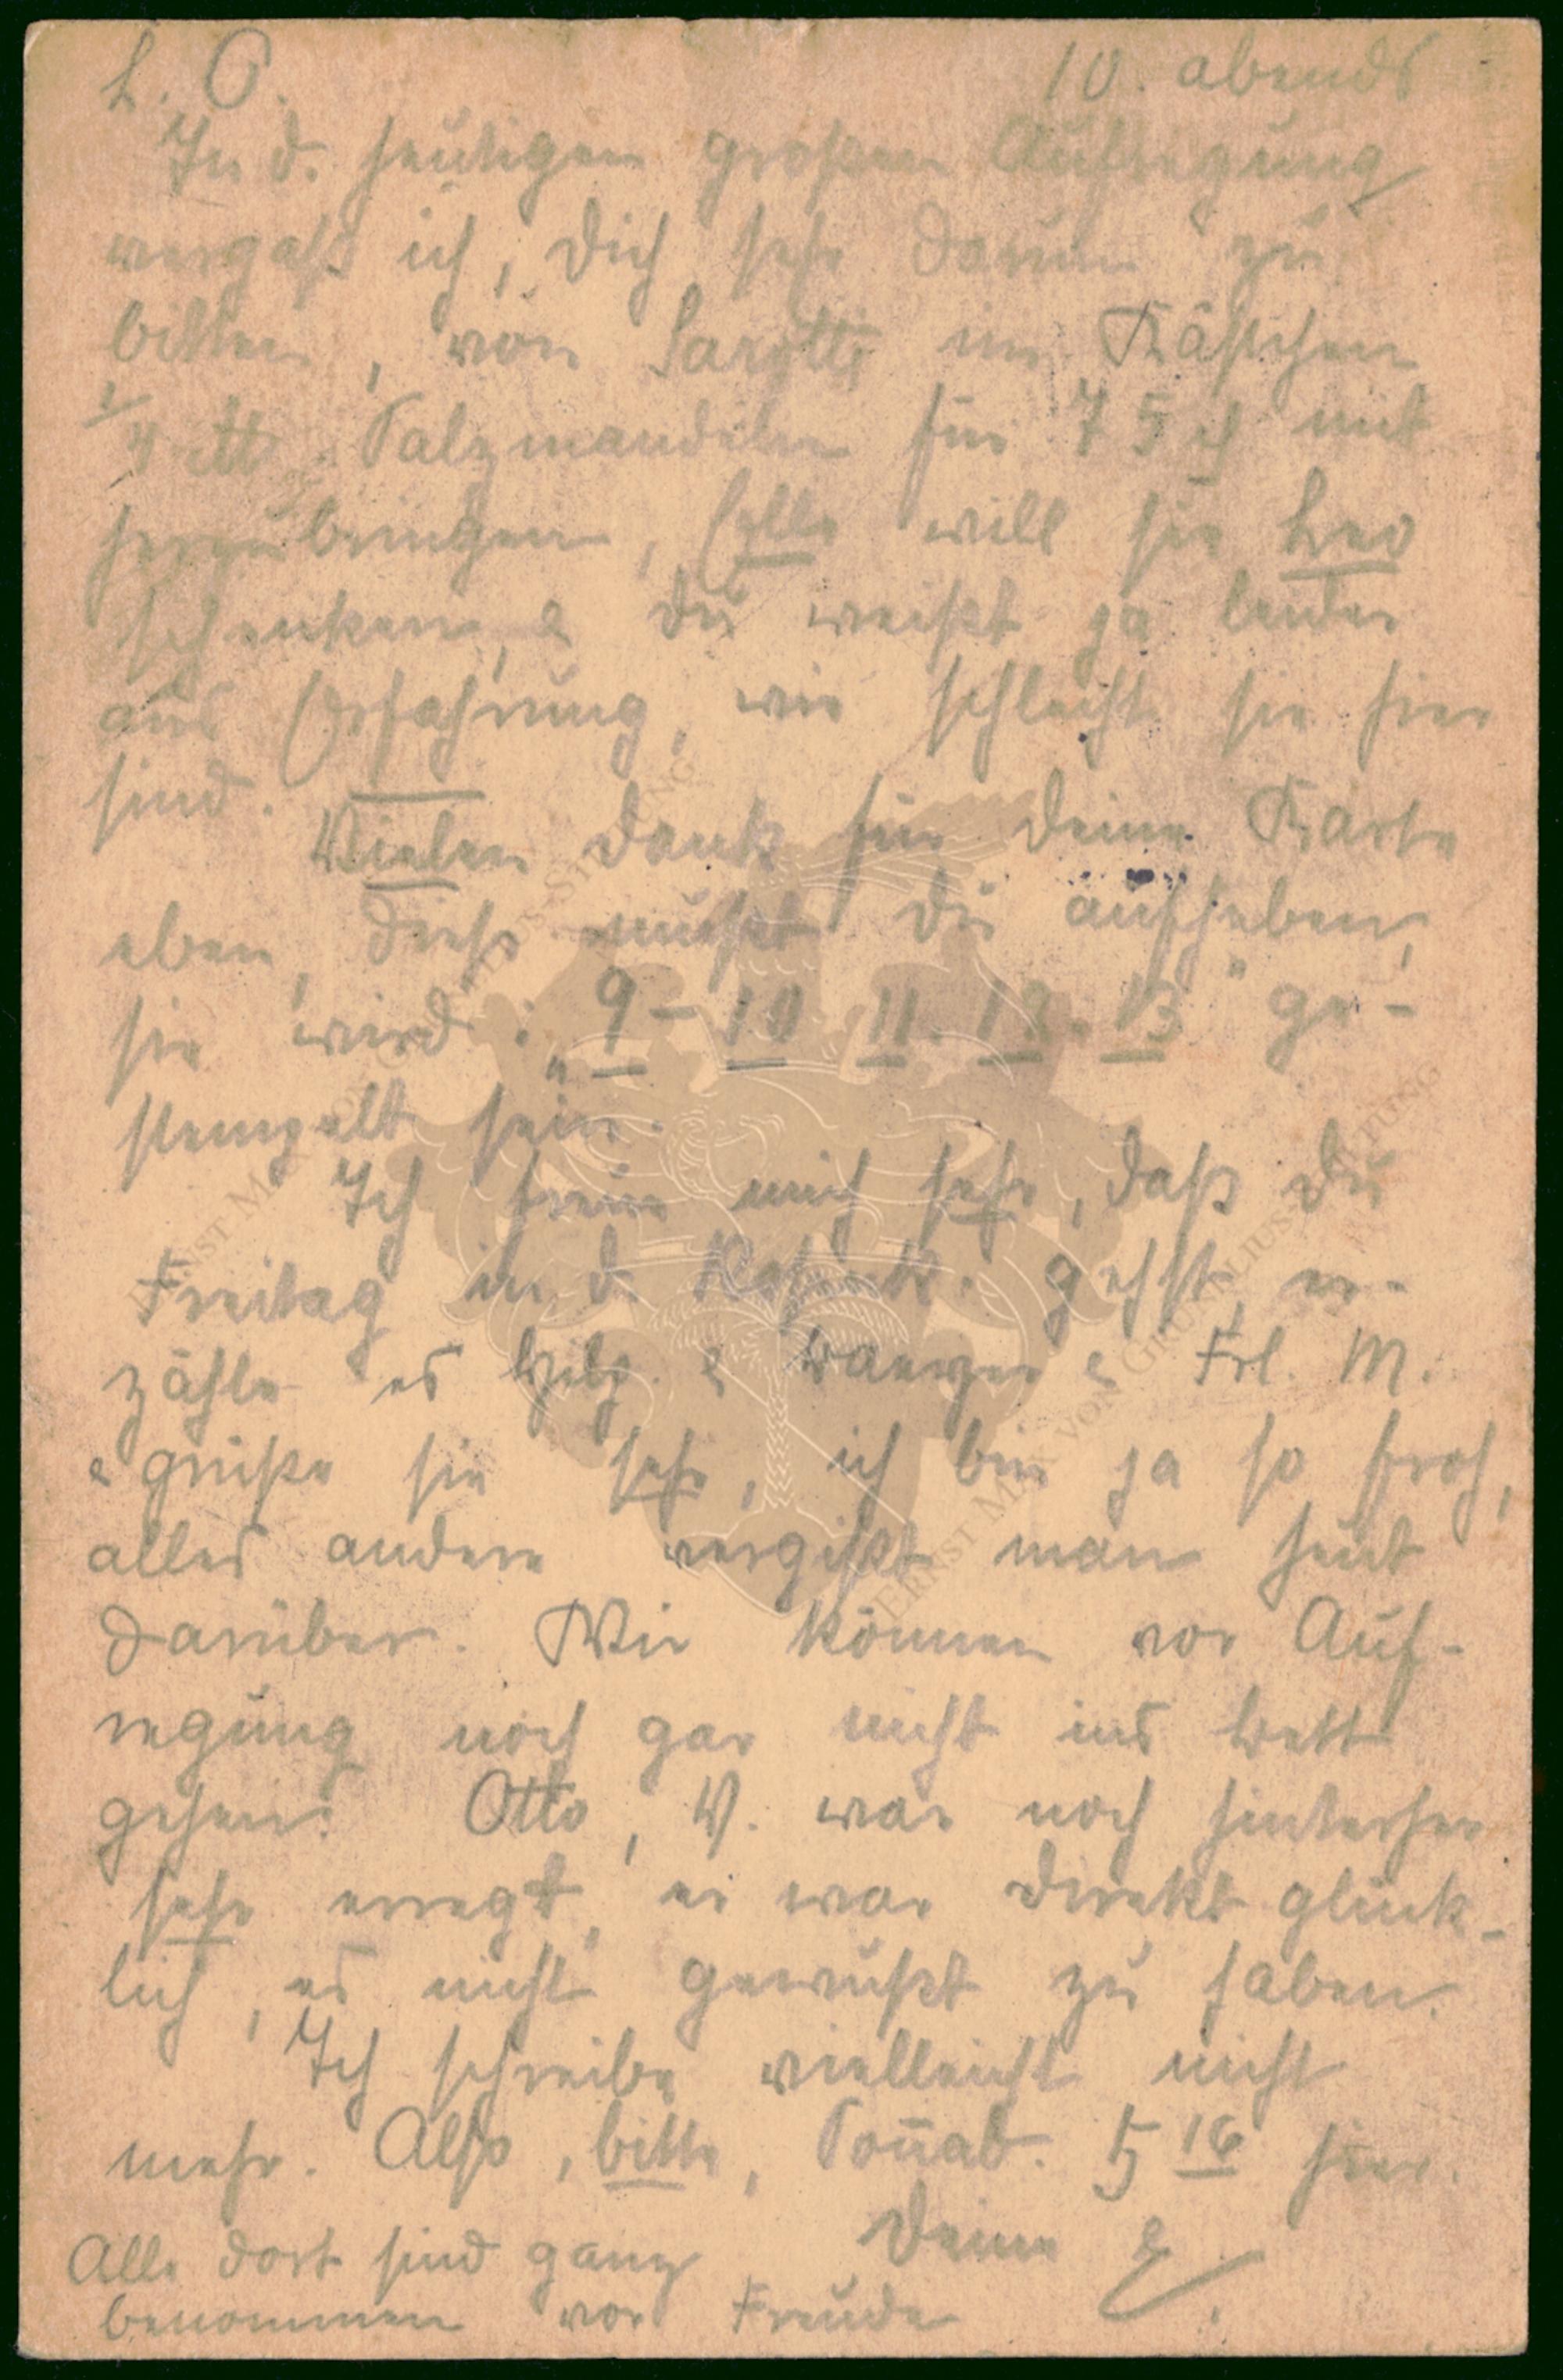 L. O. 10. abends
In d. heutigen großen Aufregung
vergaß ich, Dich sehr darum zu
bitten, von Sarotti im Kästchen
1/4 ℔ Salzmandeln für 75 ₰ mit
herzubringen, Elle will sie Leo
schenken, & Du weißt ja leider
aus Erfahrung, wie schlecht sie hier
sind.
Vielen Dank für Deine Karte
eben, diese mußt Du aufheben,
sie wird: „9 – 10 11. 12. 13" ge-
stempelt sein.
Ich freue mich sehr, daß Du
Freitag in d. gehst, er-
zähle es & & Frl. M.
& grüße sie sehr, ich bin ja so froh,
alles andere vergißt man heut
darüber. Wir können vor Auf-
regung noch gar nicht ins Bett
gehen! Otto, V. war noch hinterher
sehr erregt, er war direkt glück-
lich, es nicht gewußt zu haben.
Ich schreibe vielleicht nicht
mehr. Also, bitte, Sonnab. 5 16 hier.
Deine E.
Alle dort sind ganz
benommen vor Freude
ERNST MAX VON GRUNELIUS-STIFTUNG
ERNST MAX VON GRUNELIUS-STIFTUNG